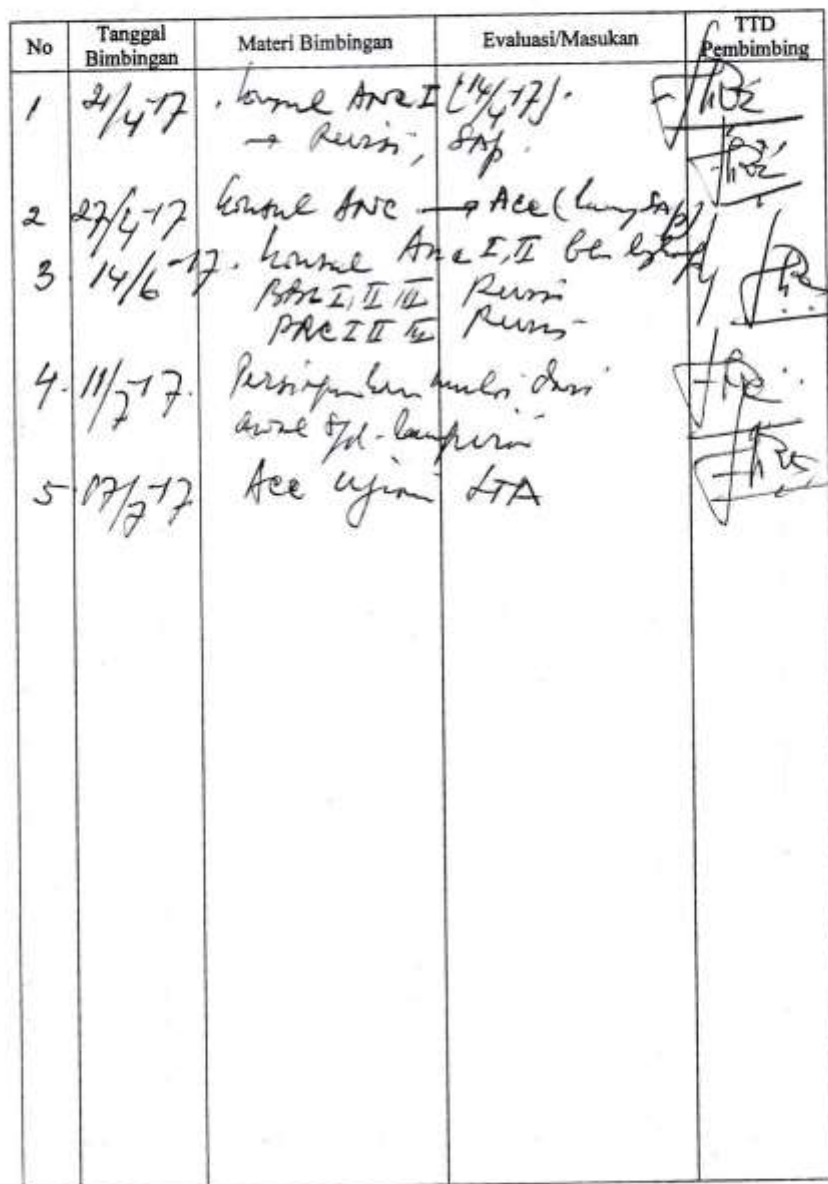 No Tanggal Bimbingan Materi Bimbingan Evaluasi/Masukan TTD Pembimbing
1 21/4-17 . konsul ANC I (14/4-17).
→ Revisi, SAP.
2 27/4-17 konsul ANC → Acc (SAP)
3 14/6-17. konsul Anc I, II
BAB I, II III Revisi
PNC I II III Revisi
4. 11/7-17. mulai dari
awal s/d - lampiran
5 17/7-17 Acc ujian LTA